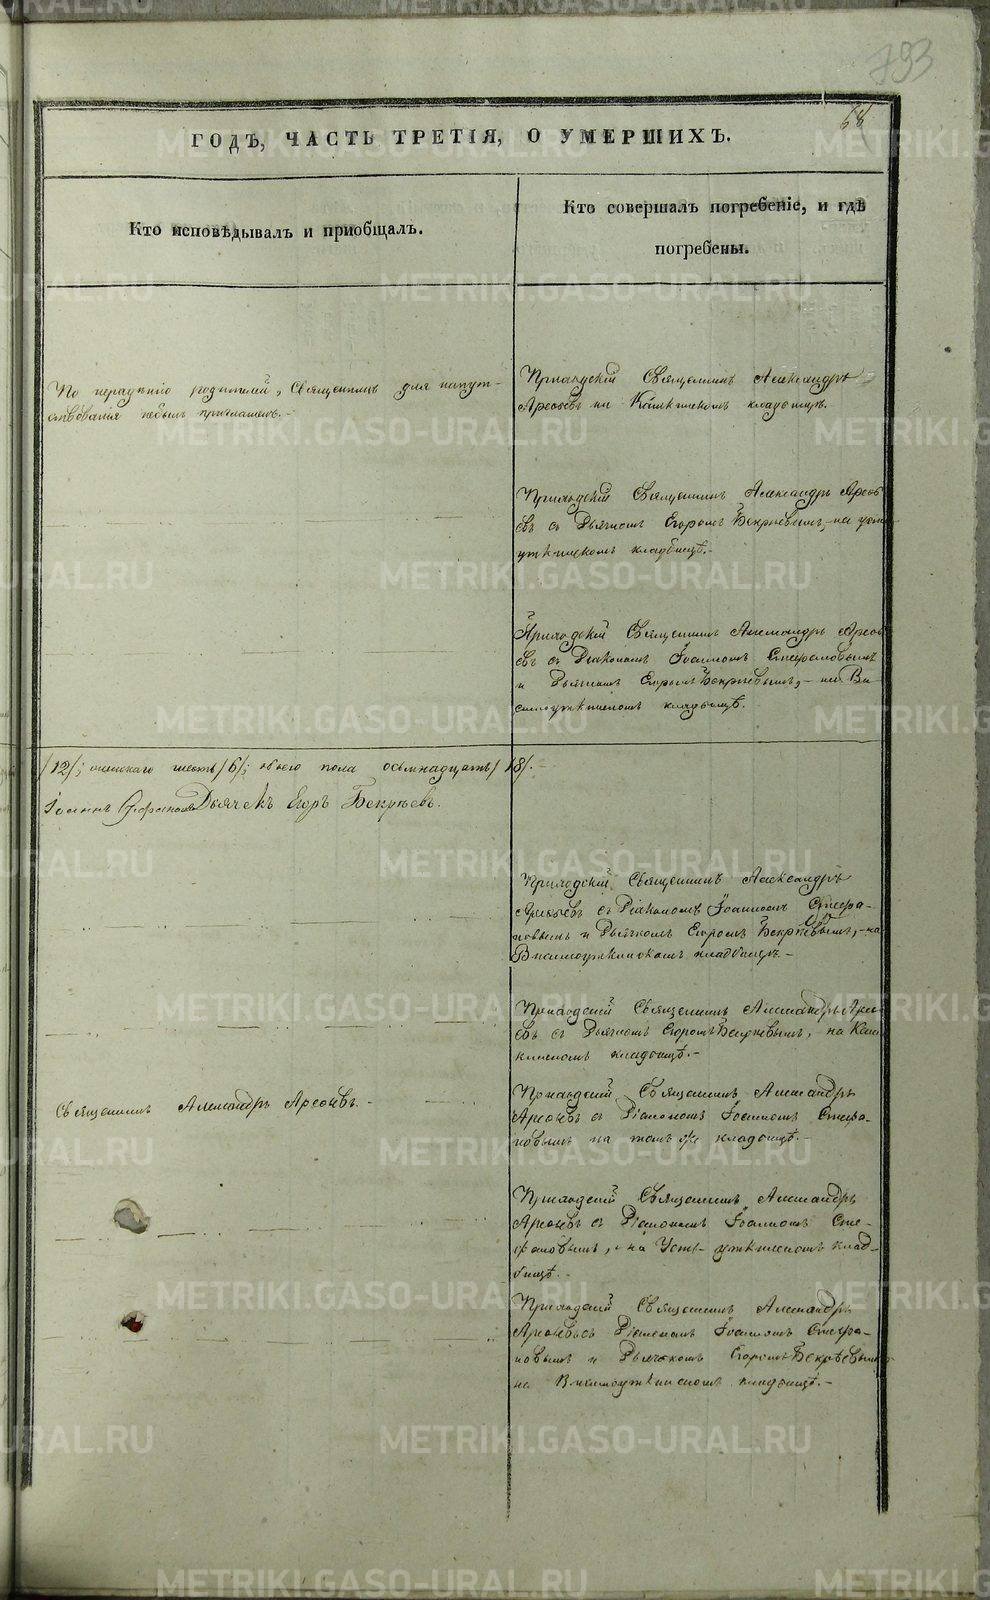 793
68
ГОДЪ, ЧАСТЬ ТРЕТІЯ, О УМЕРШИХЪ.
Кто исповѣдывалъ и пріобщалъ.
Кто совершалъ погребеніе, и гдѣ
погребены.
По нерадѣнію родителей, Священникъ для напут-
ствованія небылъ приглашенъ.-
Приходскій Священникъ Александръ
Арефьевъ на кладбищѣ.
Приходскій Священникъ Александръ Арефь
евъ съ Дьячкомъ Егоромъ Бекрѣевымъ, на Усть-
уткинскомъ кладбищѣ.-
Приходскій Священникъ Александръ Арефь
евъ съ Діакономъ Іоанномъ Стефановымъ
и Дьячкомъ Егоромъ Бекрѣевымъ,- на Ви
симоуткинскомъ кладбищѣ.
/12/; женскаго шесть /6/; обоего пола осьмнадцать /18/.-
Іоаннъ Стефановъ Дьячекъ Егоръ Бекрѣевъ.
Приходскій Священникъ Александръ
Арефьевъ съ Діакономъ Іоанномъ Стефа-
новымъ и Дьячкомъ Егоромъ Бекрѣевымъ,- на
Висимоуткинскомъ кладбищѣ.-
Приходскій Священникъ Александръ Арефь
евъ съ Дьячкомъ Егоромъ Бекрѣевымъ, на
кладбищѣ.-
Священникъ Александръ Арефьевъ.-
Приходскій Священникъ Александръ
Арефьевъ съ Діакономъ Іоанномъ Стефа-
новымъ на томъ же кладбищѣ.-
Приходскій Священникъ Александръ
Арефьевъ съ Діакономъ Іоанномъ Сте-
фановымъ, на Усть-уткинскомъ клад-
бищѣ.-
Приходскій Священникъ Александръ
Арефьевъ съ Діакономъ Іоанномъ Стефа-
новымъ и Дьячкомъ Егоромъ Бекрѣевымъ
на Висимоуткинскомъ кладбищѣ.-
METRIKI.GASO-URAL.RU